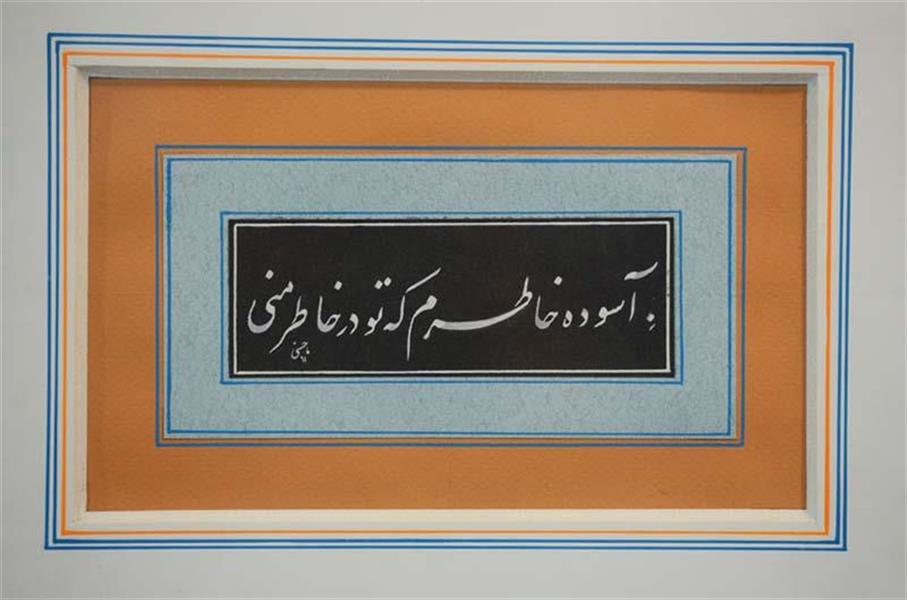 آسوده خاطرم که تو در خاطر منی